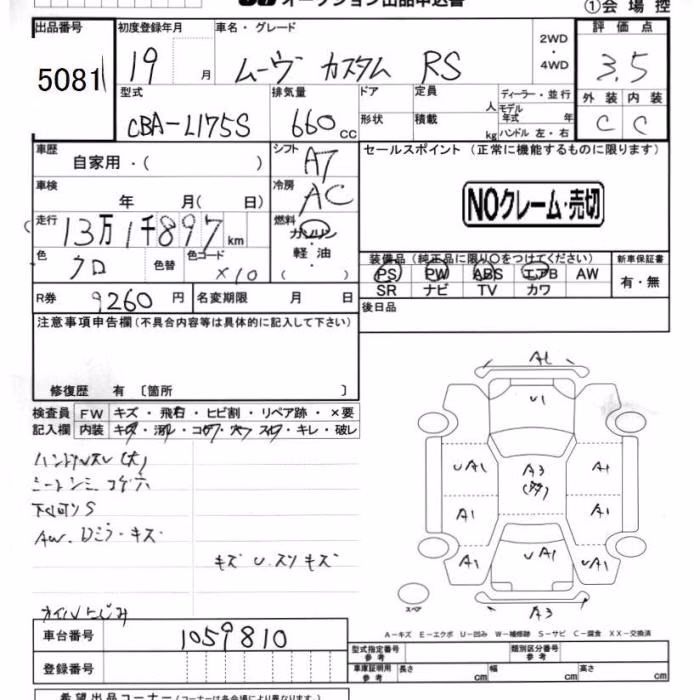 オークション出品申込書
①会場控
出品番号 初度登録年月 車名・グレード 2WD・4WD 評価点
5081 19 月 ムーヴ カスタム RS 3.5
型式 排気量 ドア 定員 人 ディーラー・並行 外装 内装
CBA-L175S 660 cc 形状 積載 kg モデル年式 年 ハンドル 左・右 C C
車歴 自家用・( ) シフト A7 セールスポイント(正常に機能するものに限ります)
車検 年 月( 日) 冷房 AC NOクレーム・売切
走行 13万1千897 km 燃料 ガソリン・軽油・( )
色 クロ 色替 色コード X10 装備品(純正品に限り○をつけてください) 新車保証書
PS PW ABS エアB AW 有・無
SR ナビ TV カワ
R券 9260円 名変期限 月 日 後日品
注意事項申告欄(不具合内容等は具体的に記入して下さい)
修復歴 有〔箇所 〕
検査員記入欄 FW キズ・飛石・ヒビ割・リペア跡・×要
内装 キズ・汚れ・コゲ・穴・スレ・キレ・破レ
シートシミ コゲ穴
下回りS
AW. Dミラーキズ
キズ U.スリキズ
オイルにじみ
A1
U1
UA1 A3 A1
A1 A1
A1 UA1 UA1
スペア A3
A-キズ E-エクボ U-凹み W-補修跡 S-サビ C-腐食 XX-交換済
車台番号 1059810 型式指定番号 参考 類別区分番号 参考
登録番号 車庫証明用 参考 長さ cm 幅 cm 高さ cm
希望出品コーナー(コーナーは各会場により異なります。)